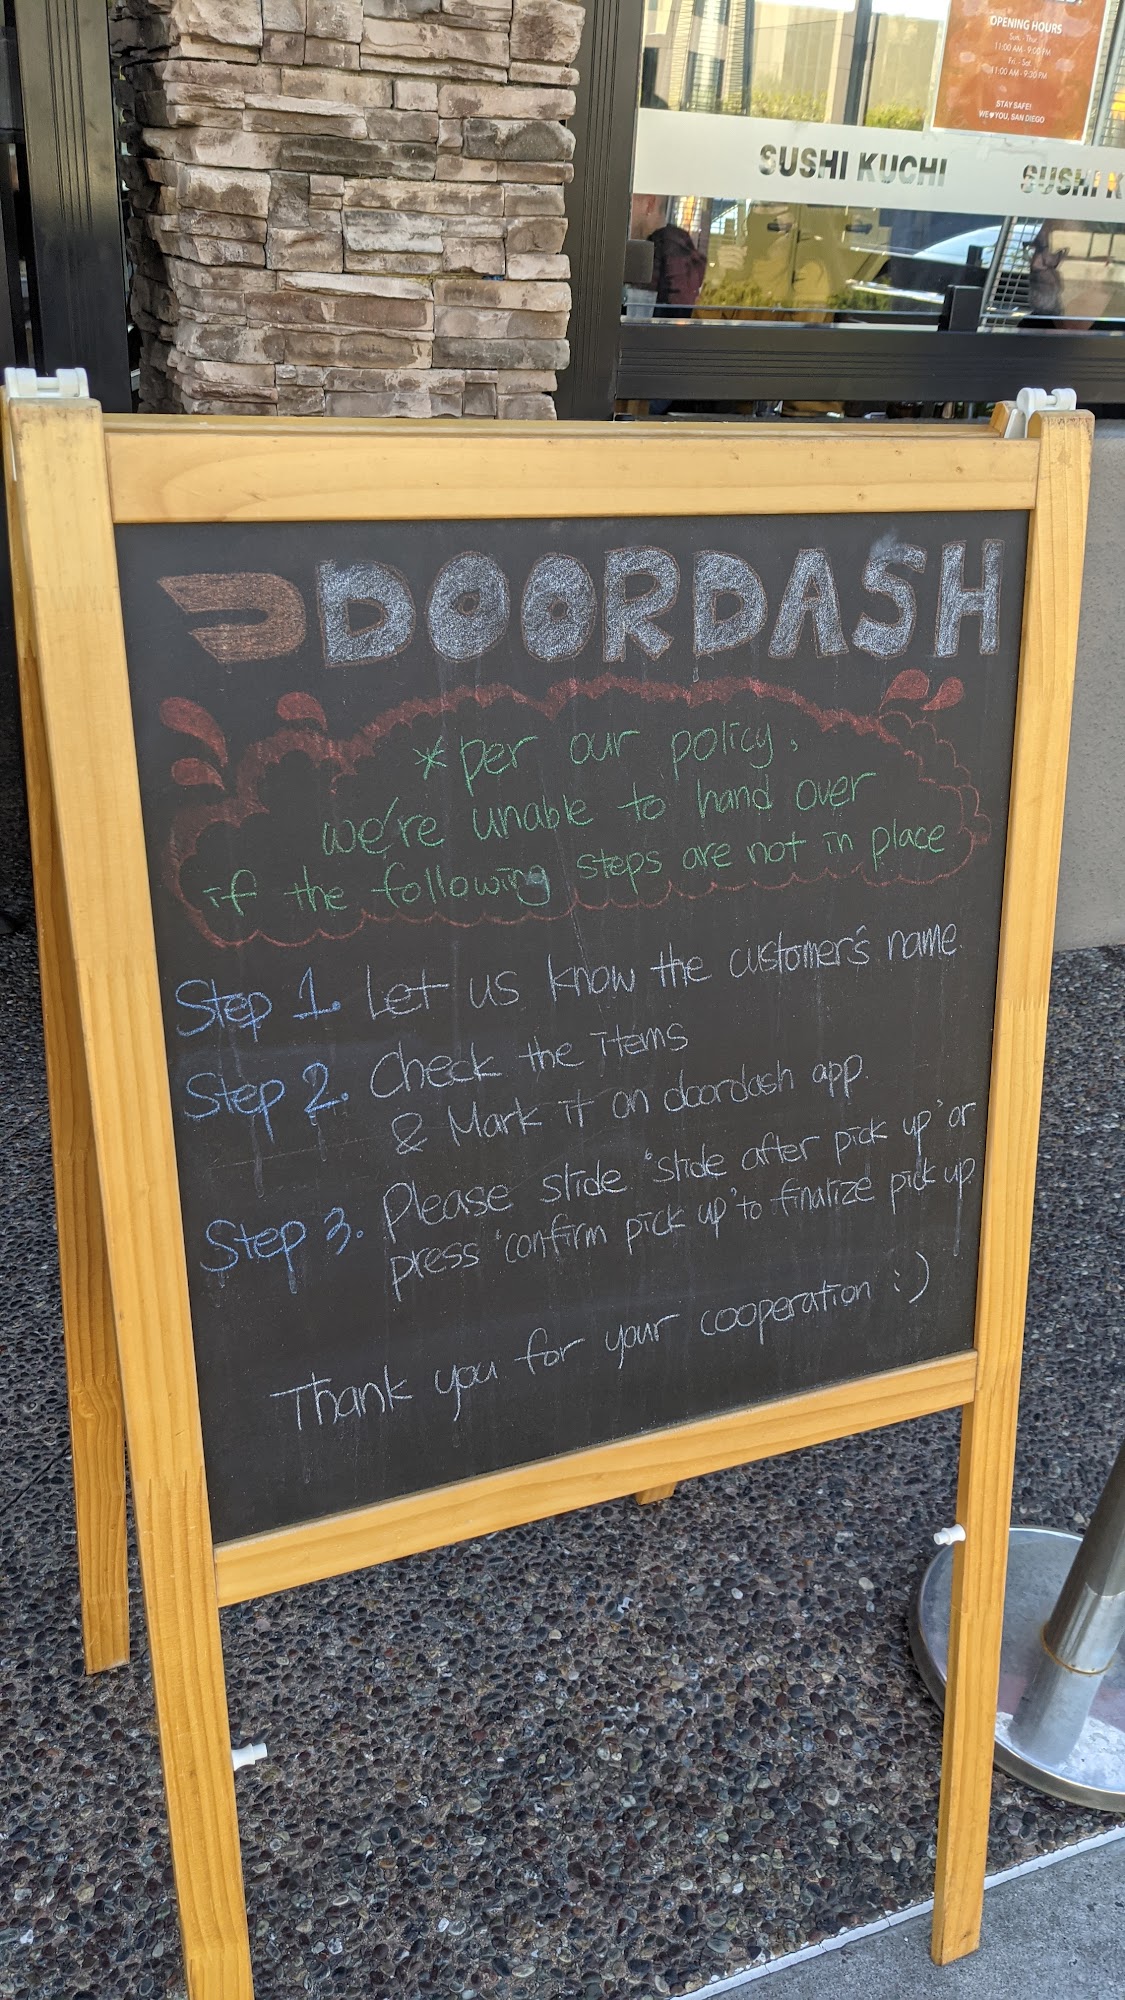 OPENING HOURS
Sun. - Thur.
11:00 AM - 9:00 PM
Fri. - Sat.
11:00 AM - 9:30 PM
STAY SAFE!
WE♥YOU, SAN DIEGO
SUSHI KUCHI
SUSHI K
DOORDASH
*per our policy,
we're unable to hand over
if the following steps are not in place
Step 1. Let us know the customer's name
Step 2. Check the items
& Mark it on doordash app.
Step 3. Please slide 'slide after pick up' or
press 'confirm pick up' to finalize pick up.
Thank you for your cooperation :)